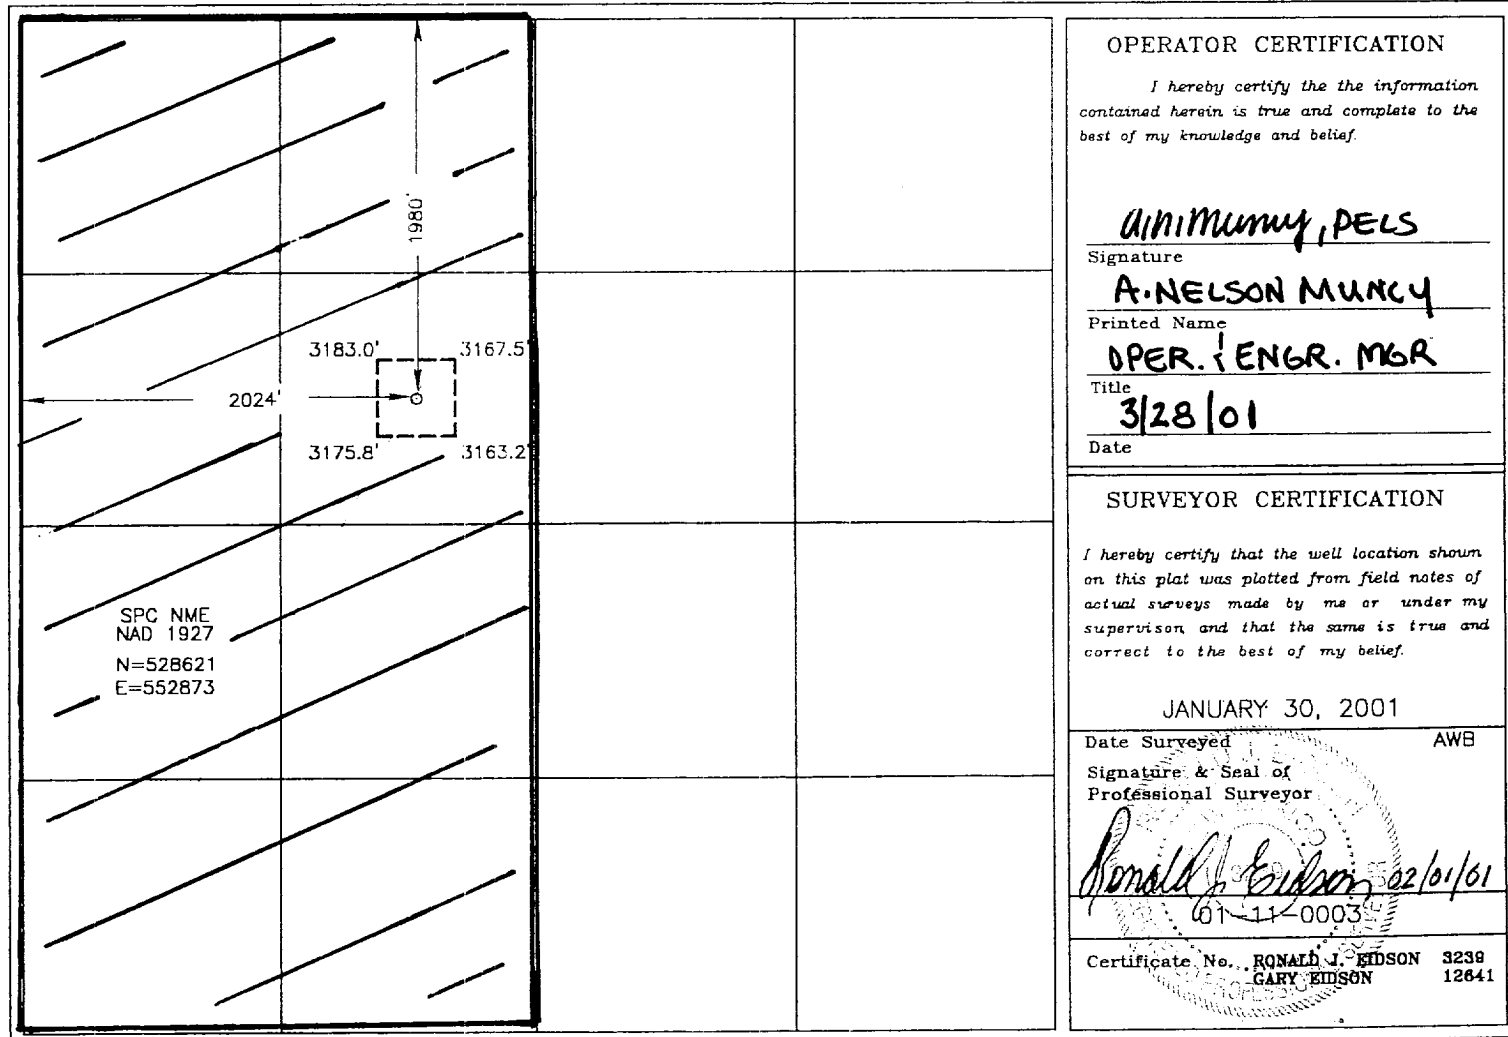 1980'
3183.0'
3167.5'
2024'
3175.8'
3163.2'
SPC NME
NAD 1927
N=528621
E=552873
OPERATOR CERTIFICATION
I hereby certify the the information
contained herein is true and complete to the
best of my knowledge and belief.
PELS
Signature
A. NELSON MUNCY
Printed Name
OPER. & ENGR. MGR
Title
3/28/01
Date
SURVEYOR CERTIFICATION
I hereby certify that the well location shown
on this plat was plotted from field notes of
actual surveys made by me or under my
supervison, and that the same is true and
correct to the best of my belief.
JANUARY 30, 2001
Date Surveyed AWB
Signature & Seal of
Professional Surveyor
Ronald J. Eidson 02/01/01
01-11-0003
Certificate No. RONALD J. EIDSON 3239
GARY EIDSON 12641